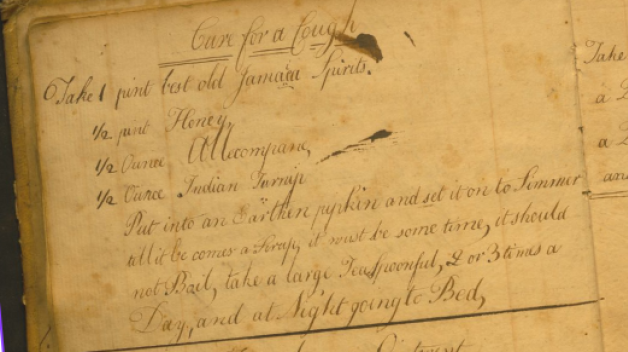 Cure for a Cough
Take 1 pint best old Jamaca Spirits.
1/2 pint Honey,
1/2 Ounce Allecompane,
1/2 Ounce Indian Turnip
Put into an Earthen pipkin and set it on to Simmer
till it be comes a Sirap, it must be some time, it should
not Boil, take a large Teaspoonful, 2 or 3 times a
Day, and at Night going to Bed,
Ointment
Take
a
a
and